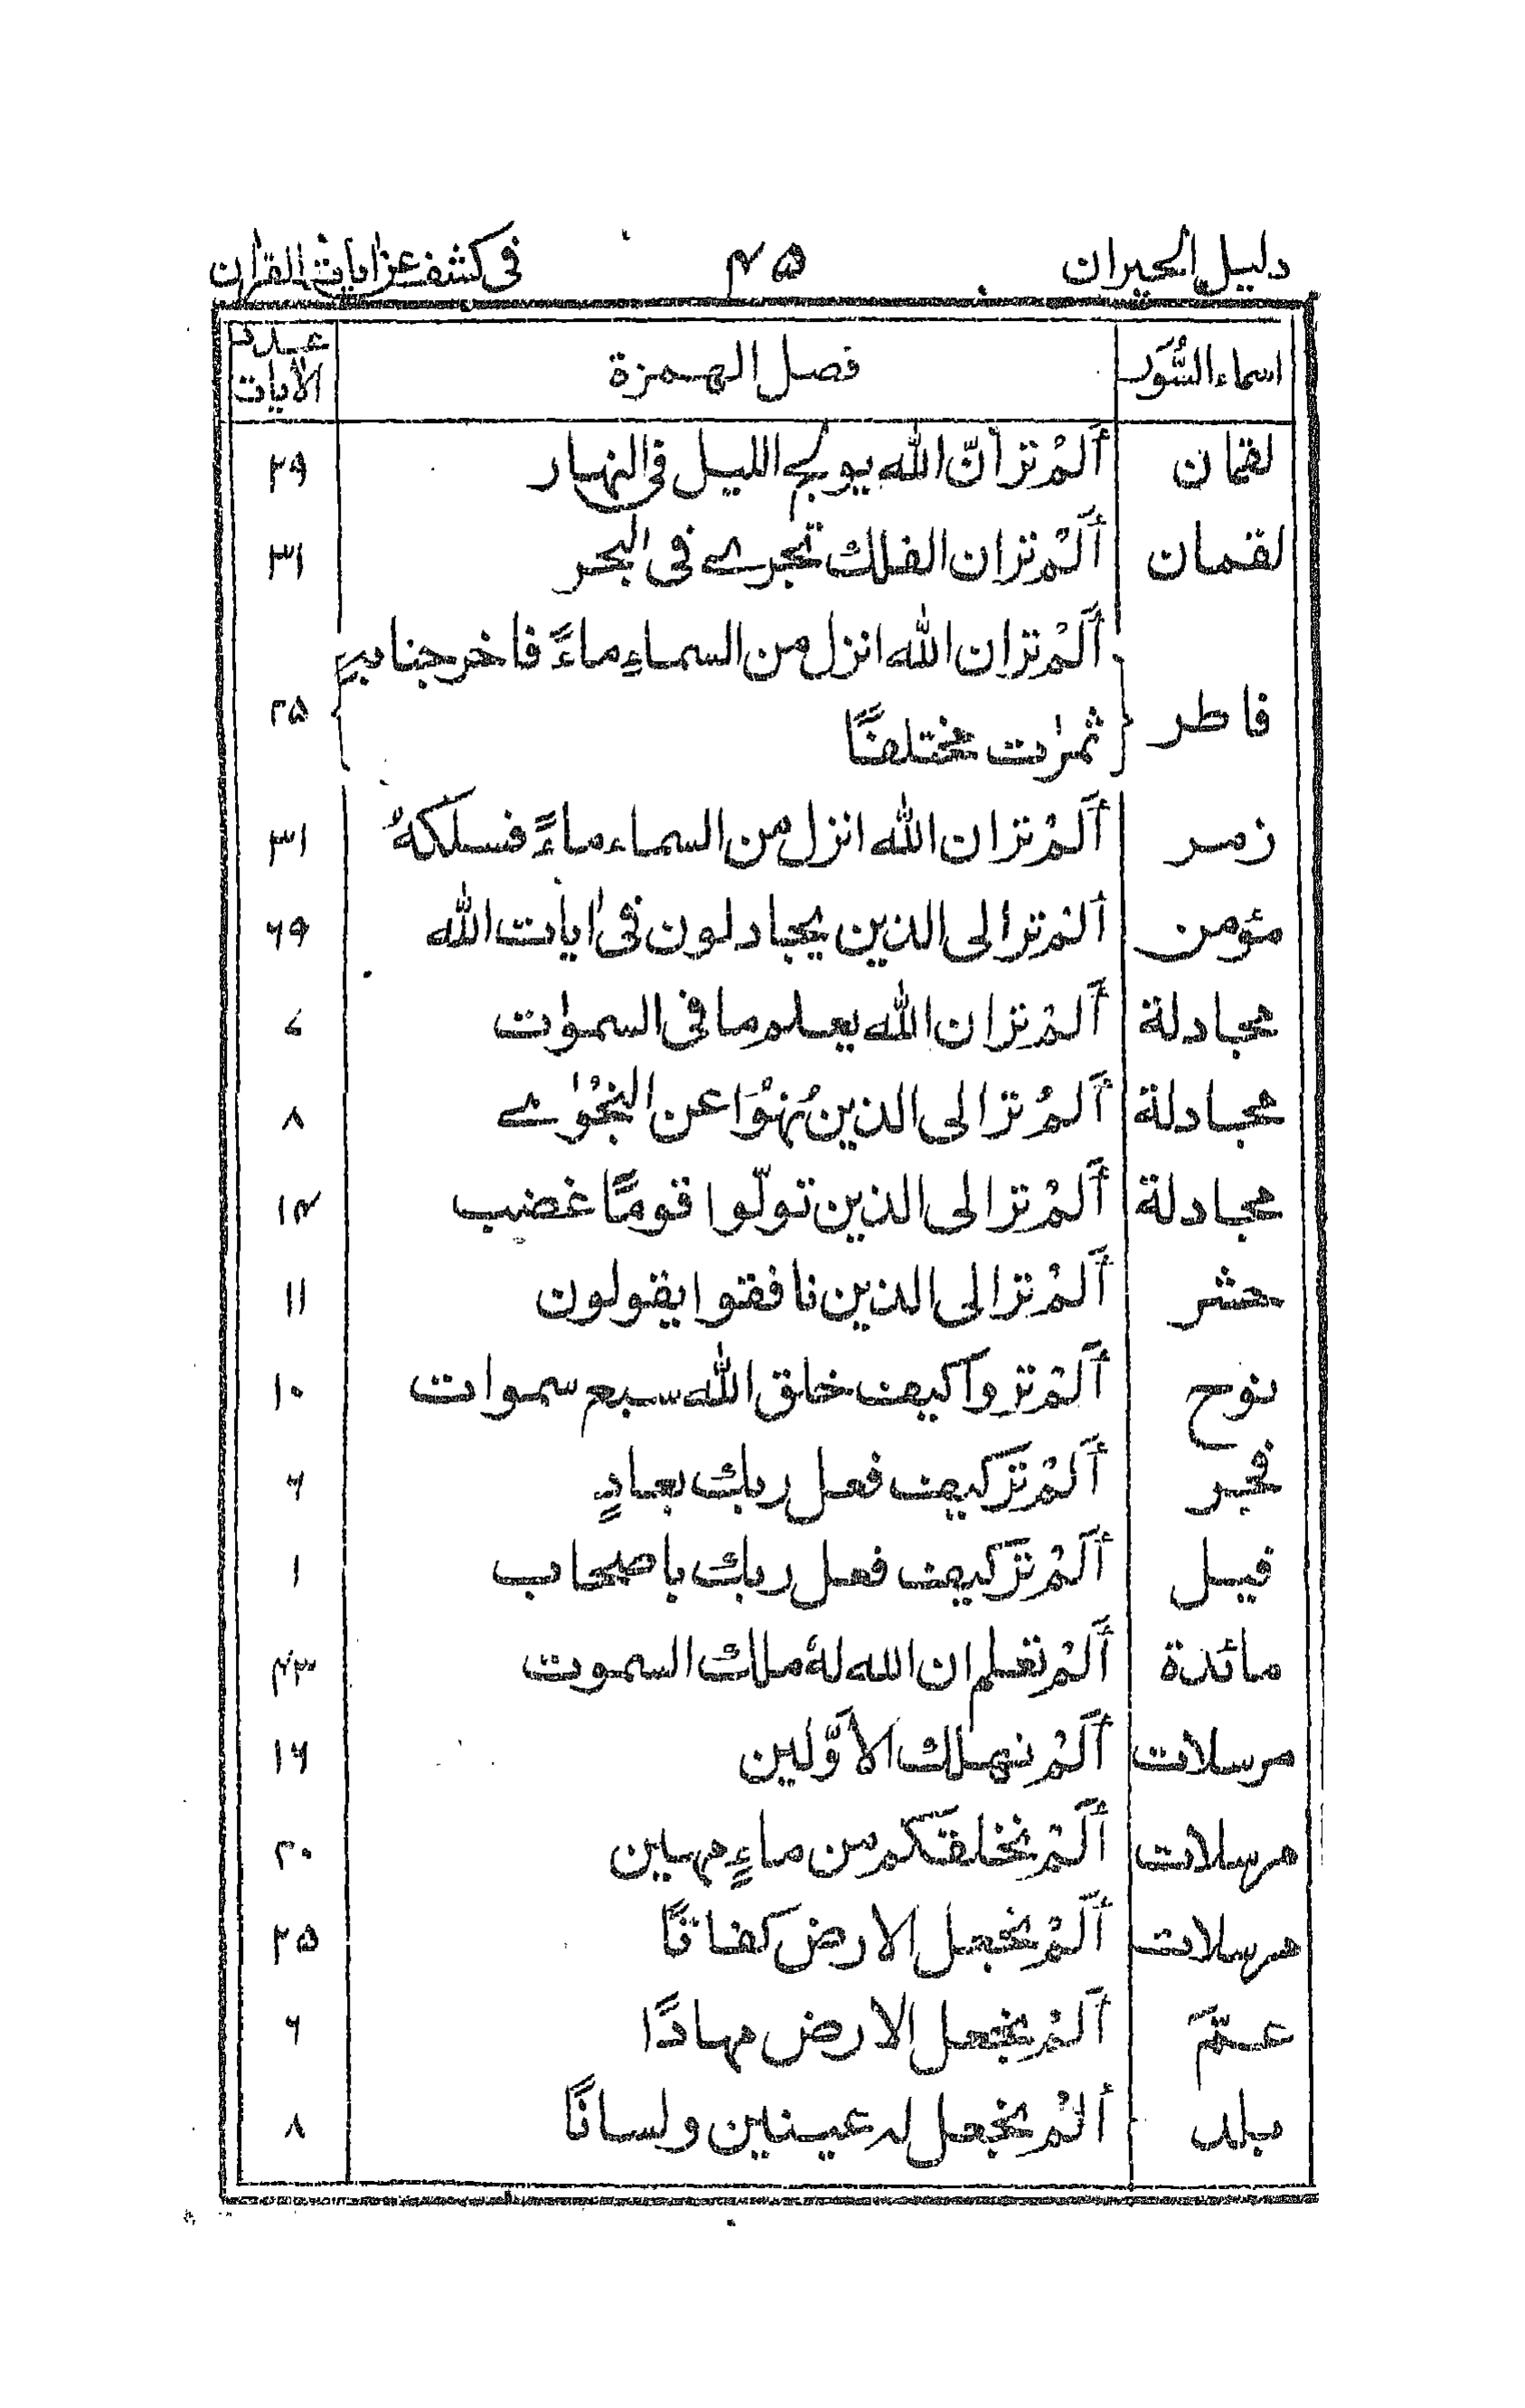 دليل الحيران ۴۵ فى كشف عن ايات القران
اسماء السُّوَر فصل الهمزة عدد الآيات
لقمان أَلَمْ تر أنّ الله يولج الليل فى النهار ۲۹
لقمان أَلَمْ تر ان الفلك تجرے فى البحر ۳۱
فاطر أَلَمْ تر ان الله انزل من السماءِ ماءً فاخرجنا بهٖ
ثمرٰت مختلفًا ۲۵
زمر أَلَمْ تر ان الله انزل من السماء ماءً فسلكهُ ۳۱
مؤمن ألَمْ تر الى الذين يجادلون فى اٰيات الله ۶۹
مجادلة أَلَمْ تر ان الله يعلم ما فى السموٰت ۷
مجادلة أَلَمْ تر الى الذين نُهُوْا عن النجْوٰے ۸
مجادلة أَلَمْ تر الى الذين تولّوا قومًا غضب ۱۴
حشر أَلَمْ تر الى الذين نافقوا يقولون ۱۱
نوح أَلَمْ تروا كيف خلق الله سبع سموات ۱۰
فجر أَلَمْ تَرَ كيف فعل ربك بعادٍ ۶
فيل أَلَمْ تَرَ كيف فعل ربك باصحاب ۱
مائدة أَلَمْ تعلم ان الله لهٗ ملك السموت ۴۳
مرسلات أَلَمْ نهلك الأوّلين ۱۶
مرسلات أَلَمْ نخلقكم من ماءٍ مهين ۲۰
مرسلات أَلَمْ نجعل الارض كفاتًا ۲۵
عمَّ ألَمْ نجعل الارض مهادًا ۶
بلد ألَمْ نجعل له عينين ولسانًا ۸